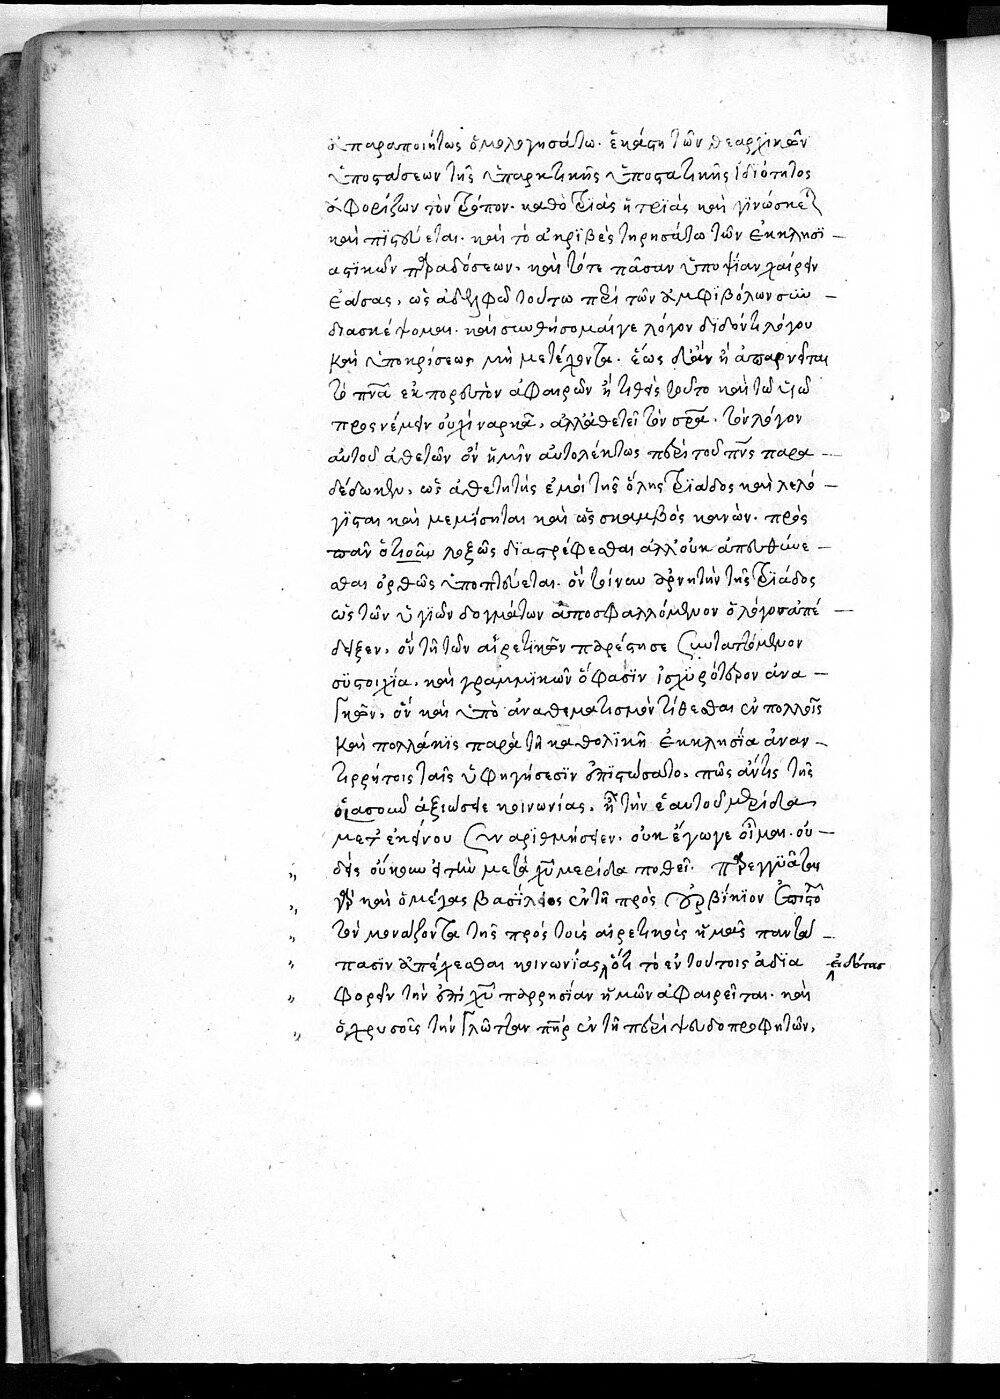 ἀπαραποιήτως ὁμολογησάτω. ἑκάστη τῶν θεαρχικῶν
ὑποστάσεων τῆς ὑπαρκτικῆς ὑποστατικῆς ἰδιότητος
ἀφορίζων τὸν τρόπον. καθὸ τριὰς ἡ τριὰς καὶ γινώσκεται
καὶ πιστεύεται. καὶ τὸ ἀκριβὲς τηρησάτω τῶν ἐκκλησι
αστικῶν παραδόσεων. καὶ τότε πᾶσαν ὑποψίαν χαίρειν
ἐάσας, ὡς ἀδελφῶ τούτω περὶ τῶν ἀμφιβόλων συν
διασκέψομαι. καὶ συνθήσομαί γε λόγον διδόντι λόγου
καὶ ὑποκρίσεως μὴ μετέχοντα. ἕως δ' ἂν ἢ ἀπαρνεῖται
τὸ πνα ἐκπορευτὸν ἀφαιρῶν ἢ τιθεὶς τοῦτο καὶ τῶ υἱῶ
προσνέμειν οὐχὶ ναρκᾶ, ἀλλ' ἀθετεῖ τὸν πρα. τὸν λόγον
αὐτοῦ ἀθετῶν ὃν ἡμῖν αὐτολέκτως περὶ τοῦ πνς παρα
δέδωκεν, ὡς ἀθετητὴς ἐμοὶ τῆς ὅλης τριάδος καὶ λελό
γισται καὶ μεμίσηται καὶ ὡς σκαμβὸς κανὼν. πρὸς
πᾶν ὁτιοῦν λοξῶς διαστρέφεσθαι ἀλλ' οὐκ ἀπευθύνε
σθαι ὀρθῶς ὑποπτεύεται. ὃν τοίνυν ἀρνητὴν τῆς τριάδος
ὡς τῶν ὑγιῶν δογμάτων ἀποσφαλλόμενον ὁ λόγος ἀπέ
δειξεν, ὃν τῆ τῶν αἱρετικῶν παρέστησε συνταττόμενον
συστοιχία, καὶ γραμμικῶν ὅφασιν ἰσχυρότερον ἀνα
γκῶν, ὃν καὶ ὑπὸ ἀναθεματισμὸν τίθεσθαι ἐν πολλοῖς
καὶ πολλάκις παρὰ τῆ καθολικῆ ἐκκλησία ἀναν
τιρρήτοις ταῖς ὑφηγήσεσιν ἐπιστώσατο, πῶς ἄν τις τῆς
οἱασοῦν ἀξιώσειε κοινωνίας, ἢ τὴν ἑαυτοῦ μερίδα
μετ' ἐκείνου συναριθμήσειεν. οὐκ ἔγωγε οἶμαι. οὐ
δεὶς οὔκουν εἰ τὴν μετὰ χυ μερίδα ποθεῖ. παρεγγυᾶται
γὰρ καὶ ὁ μέγας βασίλειος ἐν τῆ πρὸς οὐρβίκιον ἐπιστολῆ
τὸν μονάζοντα τῆς πρὸς τοὺς αἱρετικοὺς ἡμᾶς παντά
πασιν ἀπέχεσθαι κοινωνίας, ὅτι τὸ ἐν τούτοις ἀδιά εἰδότας
φορον τὴν ἐπὶ χυ παρρησίαν ἡμῶν ἀφαιρεῖται. καὶ
ὁ χρυσοῦς τὴν γλῶτταν πηρ ἐν τῆ περὶ ψευδοπροφητῶν,